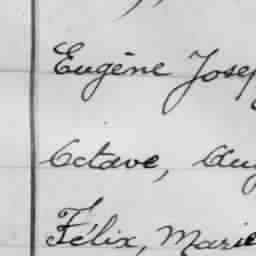 Eugène Josep
Octave, Aug
Félix, Marie